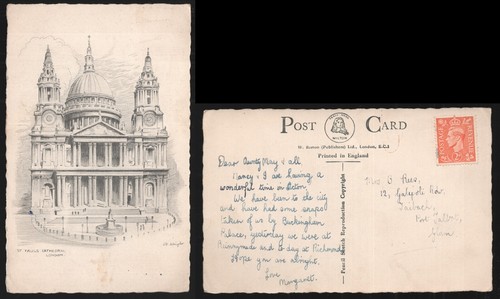 ST PAULS CATHEDRAL
LONDON.
POST CARD
MILTON
W. Barton (Publishers) Ltd., London, E.C.1
Printed in England
Pencil Sketch Reproduction Copyright
POSTAGE
REVENUE
Dear Aunty May & all
Nancy & I are having a
wonderful time in
We have been to the city
and have had some snaps
taken of us by Buckingham
Palace, yesterday we were at
Runnymede and to day at Richmond.
Hope you are alright.
Love
Margaret.
Mrs
12,
Port Talbot,
Glam